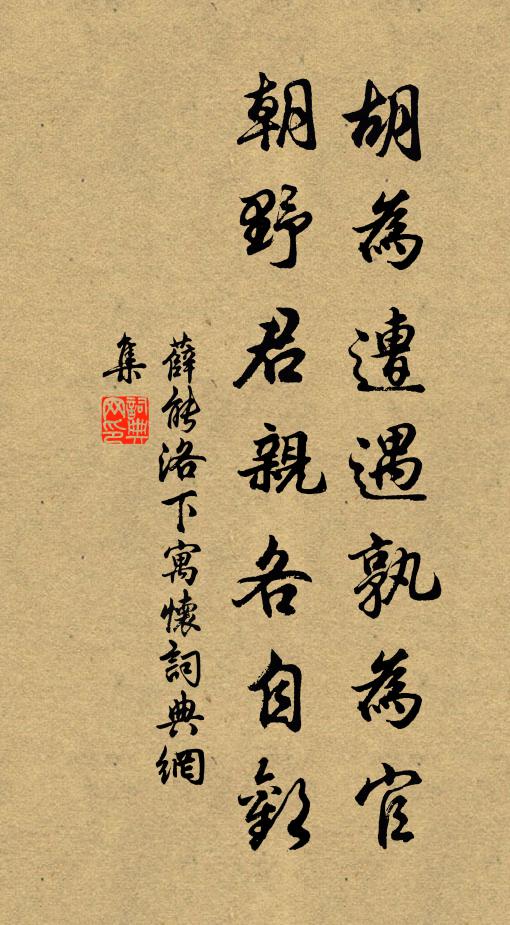 胡為遭遇孰為官
朝野君親各自歡
薛能洛下寓懷詞典網
集
詞典網印